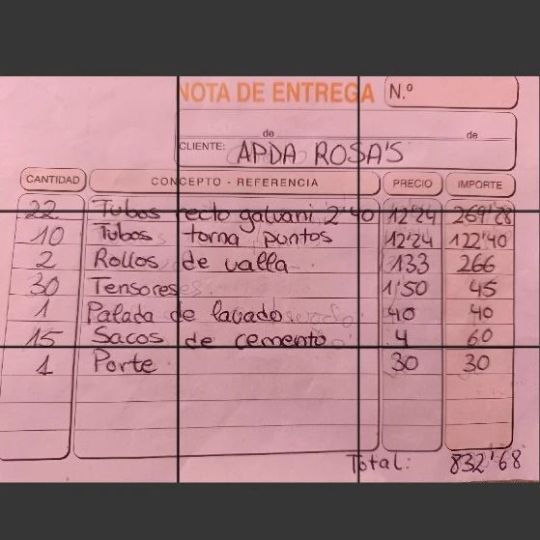 NOTA DE ENTREGA N.º
de de
CLIENTE: APDA ROSA'S
CANTIDAD CONCEPTO - REFERENCIA PRECIO IMPORTE
22 Tubos recto galvani 2'40 12'24 269'28
10 Tubos torna puntos 12'24 122'40
2 Rollos de valla 133 266
30 Tensores 1'50 45
1 Palada de lavado 40 40
15 Sacos de cemento 4 60
1 Porte 30 30
Total: 832'68